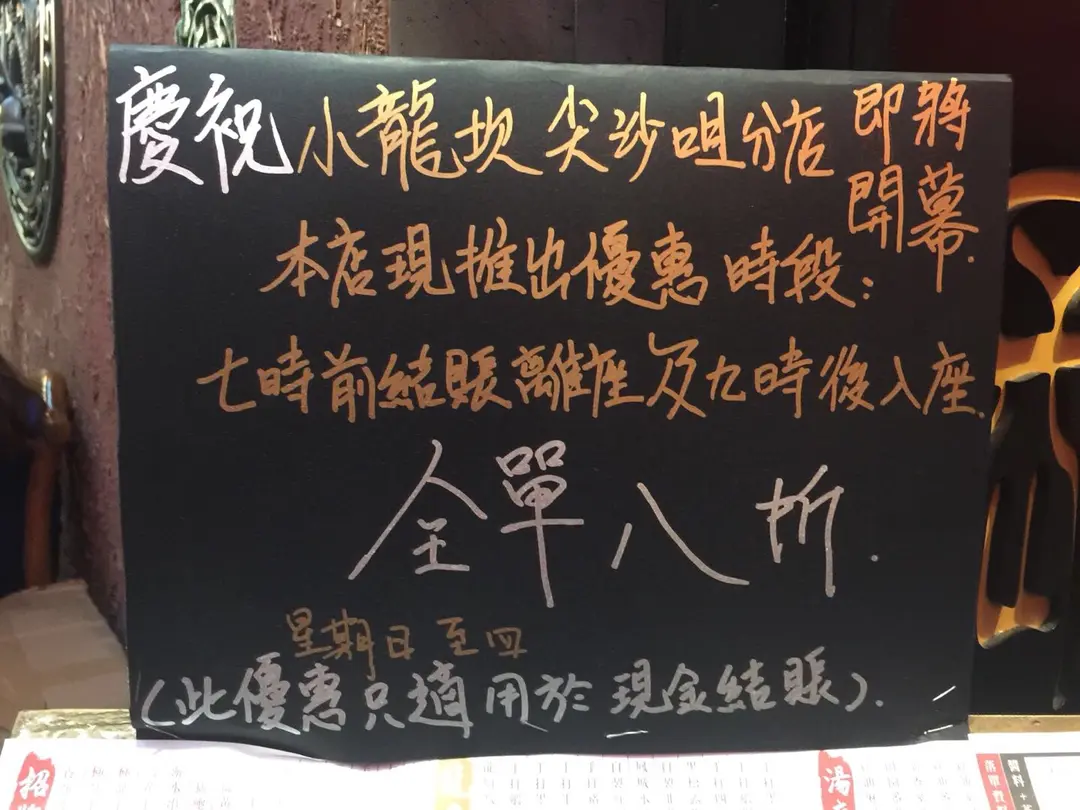 慶祝小龍坎尖沙咀分店即將開幕.
本店現推出優惠時段:
七時前結賬離座及九時後入座.
全單八折.
星期日至四
(此優惠只適用於現金結賬).
招
湯